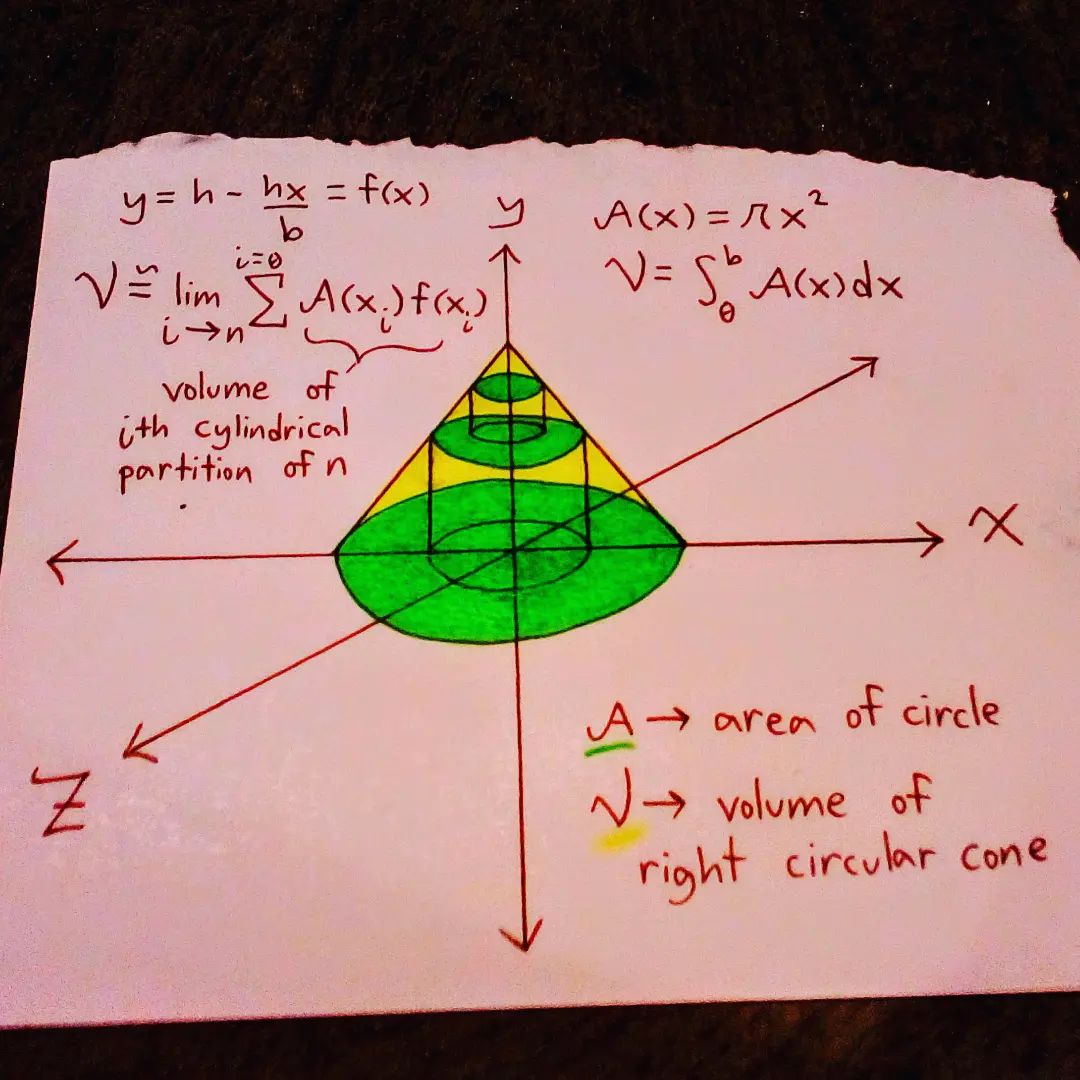 y = h - hx/b = f(x)
V ≅ lim i→n Σ i=0 A(xᵢ)f(xᵢ)
volume of
ith cylindrical
partition of n
y
A(x) = πx²
V = ∫₀ᵇ A(x)dx
x
z
A → area of circle
V → volume of
right circular cone